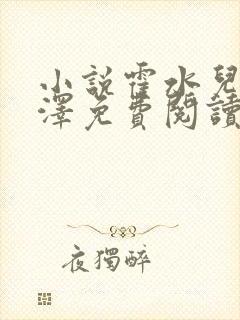 小說霍水兒
澤免費閱讀
夜獨醉